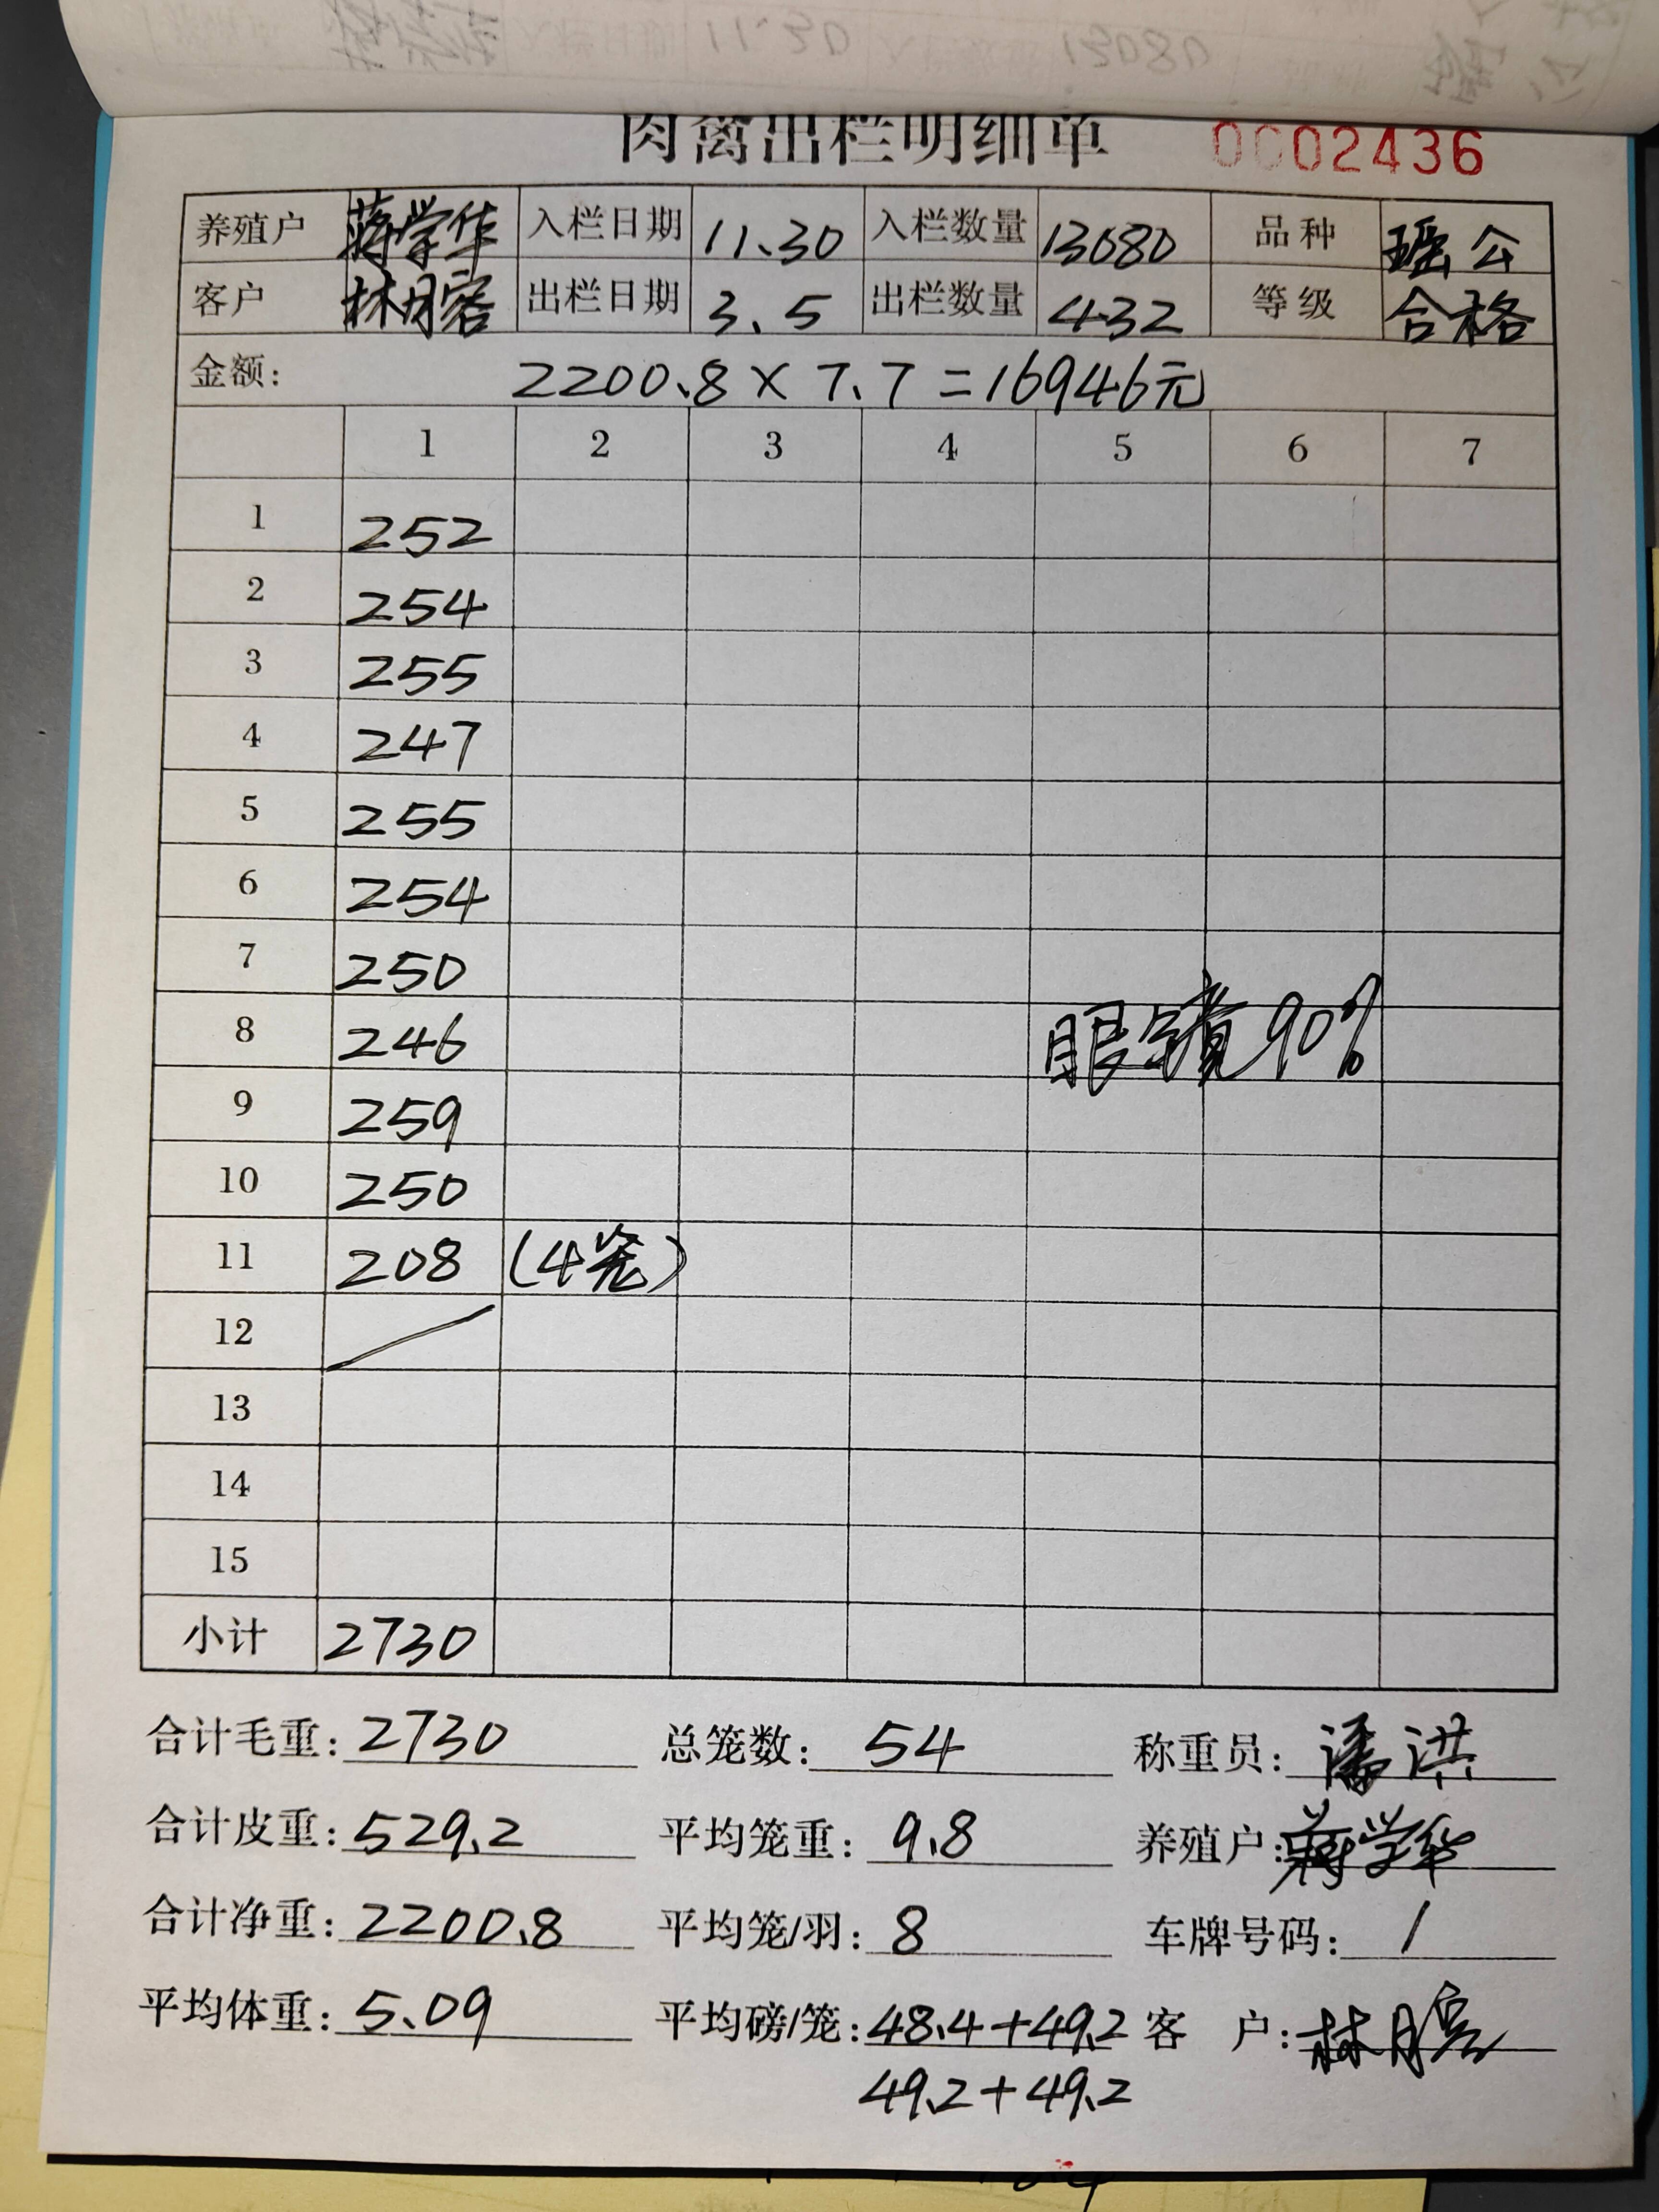 11.30 13080
肉禽出栏明细单 0002436
养殖户 蒋学华 入栏日期 11.30 入栏数量 13080 品种 瑶公
客户 林月容 出栏日期 3.5 出栏数量 432 等级 合格
金额: 2200.8×7.7=16946元
1 2 3 4 5 6 7
1 252
2 254
3 255
4 247
5 255
6 254
7 250
8 246 眼镜90%
9 259
10 250
11 208 (4笼)
12
13
14
15
小计 2730
合计毛重: 2730 总笼数: 54 称重员: 潘洪
合计皮重: 529.2 平均笼重: 9.8 养殖户: 蒋学华
合计净重: 2200.8 平均笼/羽: 8 车牌号码: /
平均体重: 5.09 平均磅/笼: 48.4+49.2 客 户: 林月容
49.2+49.2